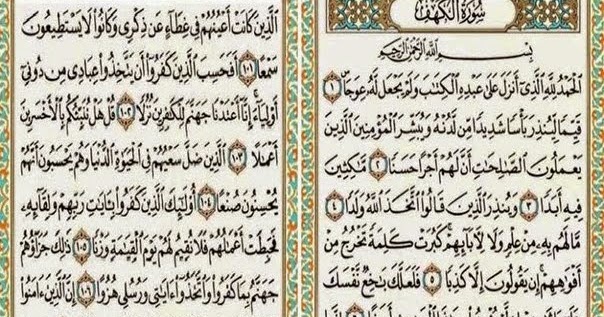 سُورَةُ الكَهْفِ
بِسْمِ اللَّهِ الرَّحْمَٰنِ الرَّحِيمِ
ٱلْحَمْدُ لِلَّهِ ٱلَّذِىٓ أَنزَلَ عَلَىٰ عَبْدِهِ ٱلْكِتَٰبَ وَلَمْ يَجْعَل لَّهُۥ عِوَجَاۜ ١
قَيِّمًا لِّيُنذِرَ بَأْسًا شَدِيدًا مِّن لَّدُنْهُ وَيُبَشِّرَ ٱلْمُؤْمِنِينَ ٱلَّذِينَ
يَعْمَلُونَ ٱلصَّٰلِحَٰتِ أَنَّ لَهُمْ أَجْرًا حَسَنًا ٢ مَّٰكِثِينَ
فِيهِ أَبَدًا ٣ وَيُنذِرَ ٱلَّذِينَ قَالُوا۟ ٱتَّخَذَ ٱللَّهُ وَلَدًا ٤
مَّا لَهُم بِهِۦ مِنْ عِلْمٍ وَلَا لِءَابَآئِهِمْ ۚ كَبُرَتْ كَلِمَةً تَخْرُجُ مِنْ
أَفْوَٰهِهِمْ ۚ إِن يَقُولُونَ إِلَّا كَذِبًا ٥ فَلَعَلَّكَ بَٰخِعٌ نَّفْسَكَ
ٱلَّذِينَ كَانَتْ أَعْيُنُهُمْ فِى غِطَآءٍ عَن ذِكْرِى وَكَانُوا۟ لَا يَسْتَطِيعُونَ
سَمْعًا ١٠١ أَفَحَسِبَ ٱلَّذِينَ كَفَرُوٓا۟ أَن يَتَّخِذُوا۟ عِبَادِى مِن دُونِىٓ
أَوْلِيَآءَ ۚ إِنَّآ أَعْتَدْنَا جَهَنَّمَ لِلْكَٰفِرِينَ نُزُلًا ١٠٢ قُلْ هَلْ نُنَبِّئُكُم بِٱلْأَخْسَرِينَ
أَعْمَٰلًا ١٠٣ ٱلَّذِينَ ضَلَّ سَعْيُهُمْ فِى ٱلْحَيَوٰةِ ٱلدُّنْيَا وَهُمْ يَحْسَبُونَ أَنَّهُمْ
يُحْسِنُونَ صُنْعًا ١٠٤ أُو۟لَٰٓئِكَ ٱلَّذِينَ كَفَرُوا۟ بِـَٔايَٰتِ رَبِّهِمْ وَلِقَآئِهِۦ
فَحَبِطَتْ أَعْمَٰلُهُمْ فَلَا نُقِيمُ لَهُمْ يَوْمَ ٱلْقِيَٰمَةِ وَزْنًا ١٠٥ ذَٰلِكَ جَزَآؤُهُمْ
جَهَنَّمُ بِمَا كَفَرُوا۟ وَٱتَّخَذُوٓا۟ ءَايَٰتِى وَرُسُلِى هُزُوًا ١٠٦ إِنَّ ٱلَّذِينَ ءَامَنُوا۟